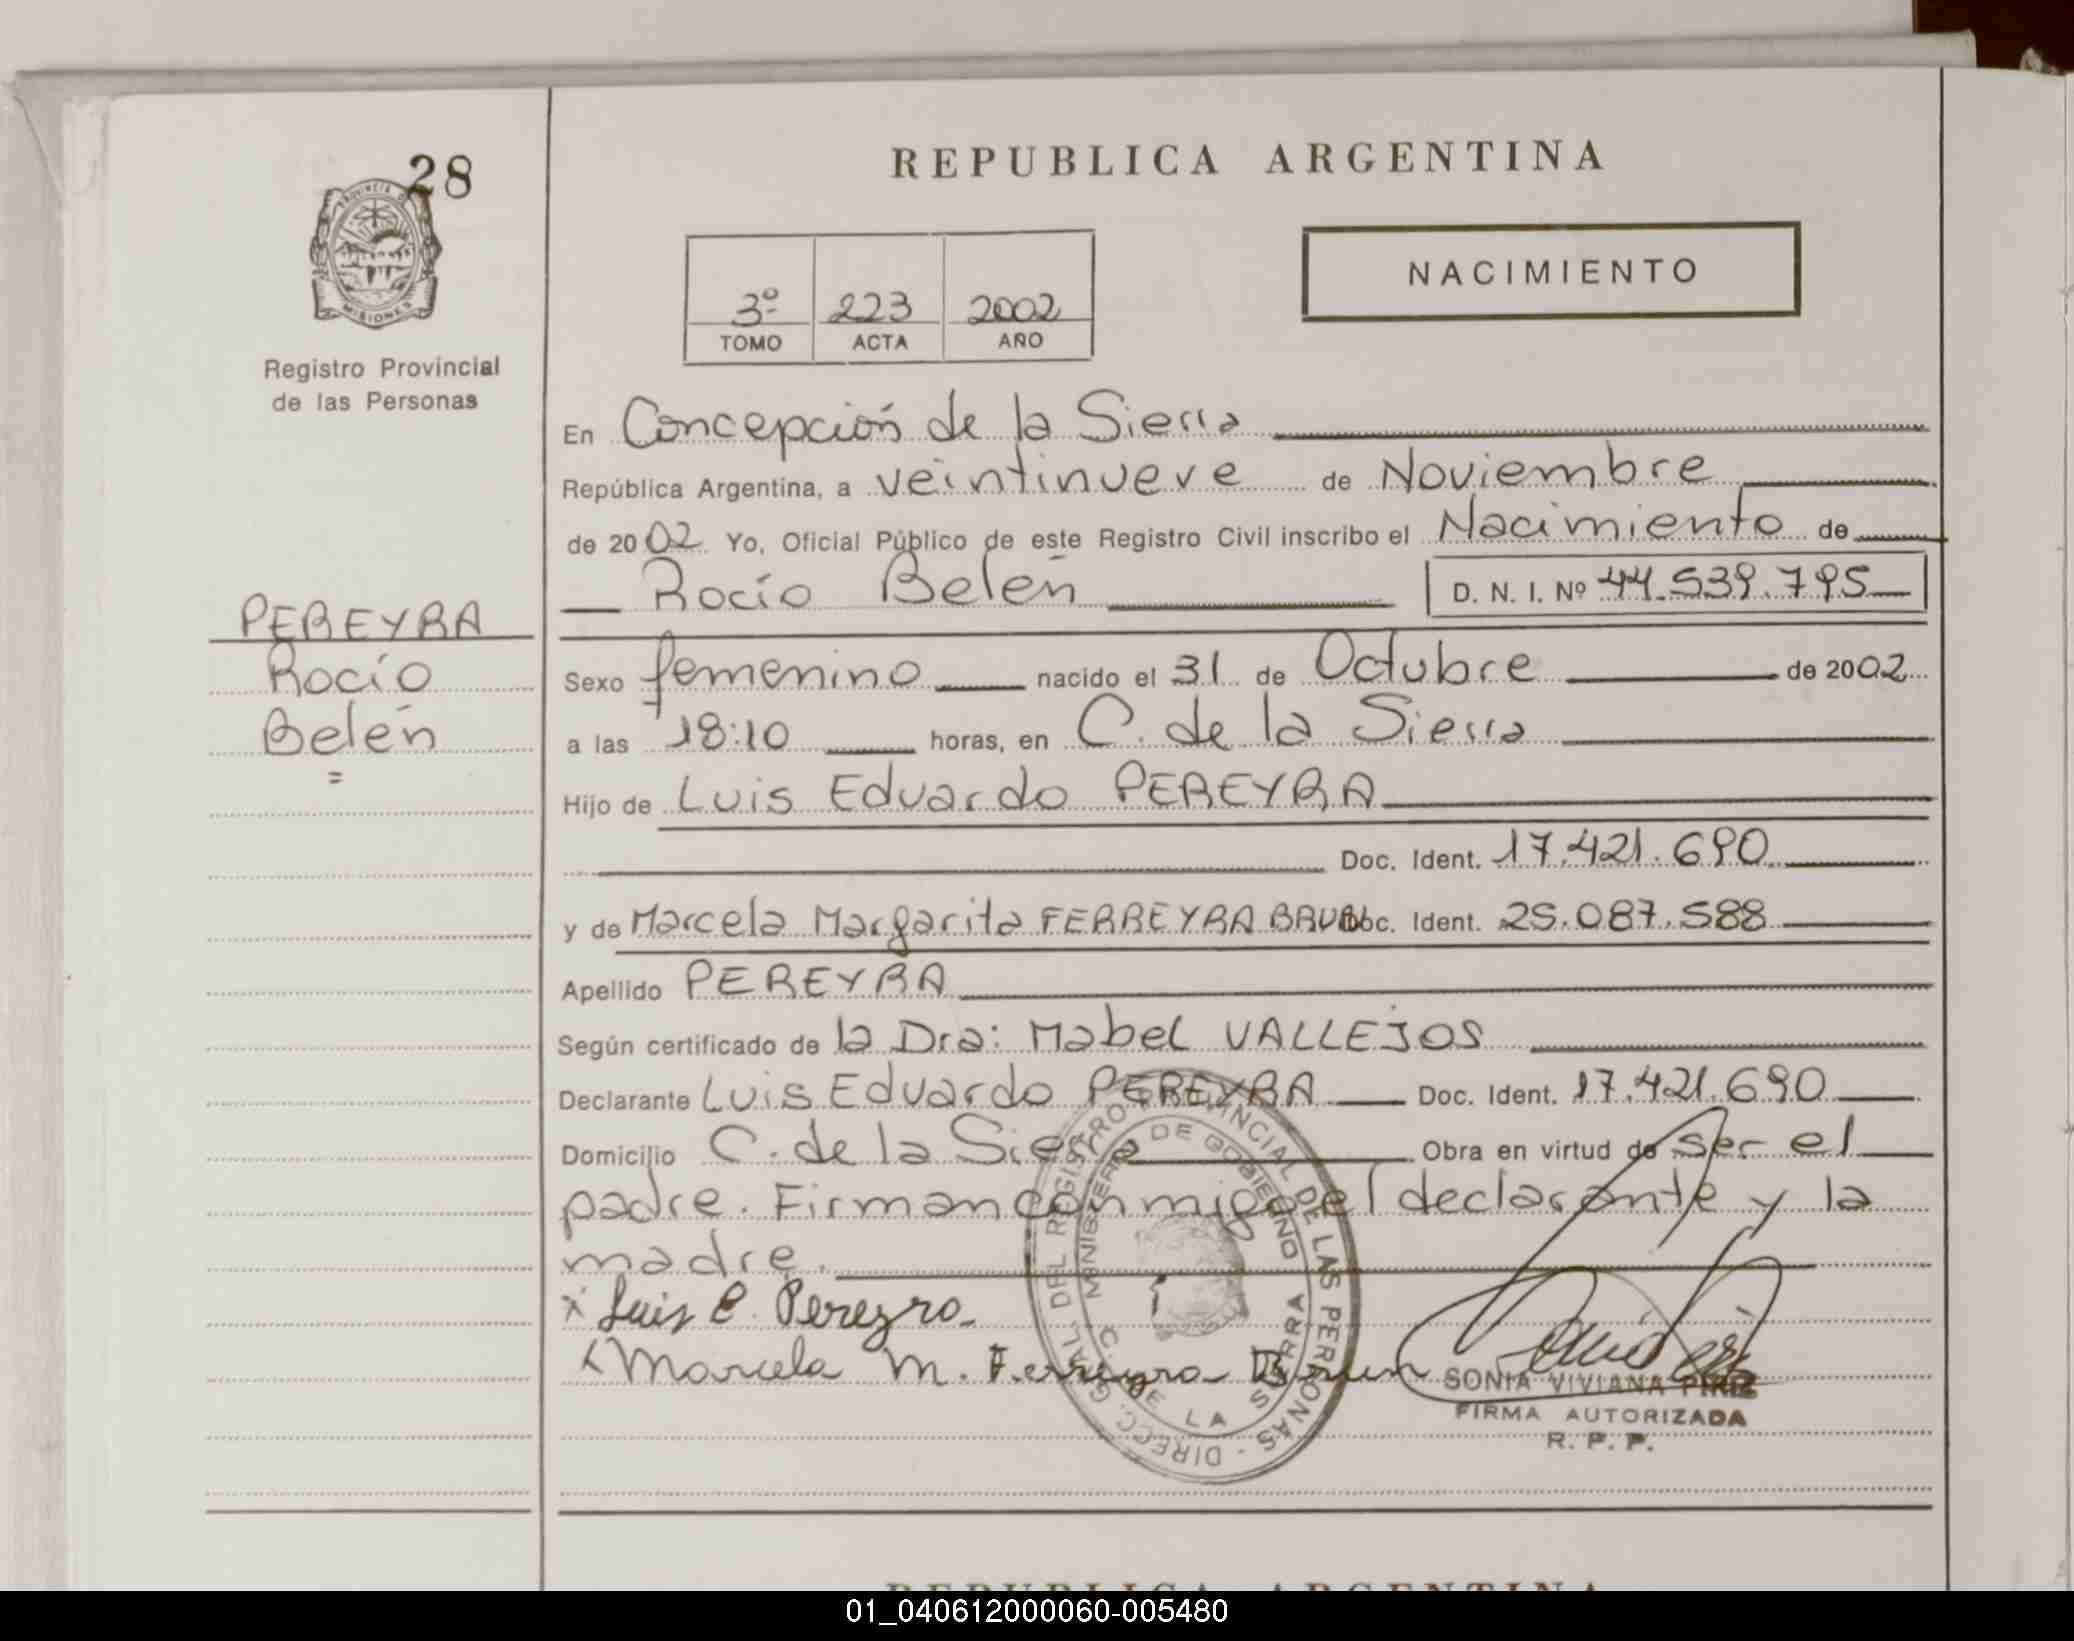 28
PROVINCIA DE
MISIONES
Registro Provincial
de las Personas
PEREYRA
Rocío
Belén
=
REPUBLICA ARGENTINA
3º 223 2002
TOMO ACTA AÑO
NACIMIENTO
En Concepción de la Sierra
República Argentina, a veintinueve de Noviembre
de 2002 Yo, Oficial Público de este Registro Civil inscribo el Nacimiento de
Rocío Belén D. N. I. Nº 44.539.795
Sexo femenino nacido el 31 de Octubre de 2002
a las 18:10 horas, en C. de la Sierra
Hijo de Luis Eduardo PEREYRA
Doc. Ident. 17.421.690
y de Marcela Margarita FERREYRA BRUN Doc. Ident. 25.087.588
Apellido PEREYRA
Según certificado de la Dra: Mabel VALLEJOS
Declarante Luis Eduardo PEREYRA Doc. Ident. 17.421.690
Domicilio C. de la Sierra Obra en virtud de ser el
padre. Firman conmigo el declarante y la
madre.
x Luis E. Pereyra
x Marcela M. Ferreyra Brun
DIRECC. GRAL. DEL REGISTRO PROVINCIAL DE LAS PERSONAS -
MINISTERIO DE GOBIERNO
C. DE LA SIERRA
SONIA VIVIANA PIRIZ
FIRMA AUTORIZADA
R. P. P.
REPUBLICA ARGENTINA
01_040612000060-005480